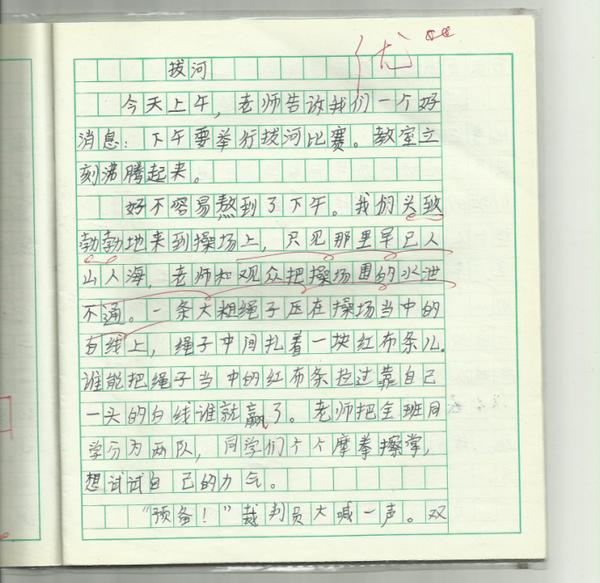 优
拔河
今天上午，老师告诉我们一个好
消息：下午要举行拔河比赛。教室立
刻沸腾起来。
好不容易熬到了下午。我们头致
勃勃地来到操场上，只见那里早已人
山人海，老师和观众把操场围的水泄
不通。一条大粗绳子压在操场当中的
白线上，绳子中间扎着一块红布条儿.
谁能把绳子当中的红布条拉过靠自己
一头的白线谁就赢了。老师把全班同
学分为两队，同学们个个摩拳擦掌，
想试试自己的力气。
“预备！”裁判员大喊一声。双